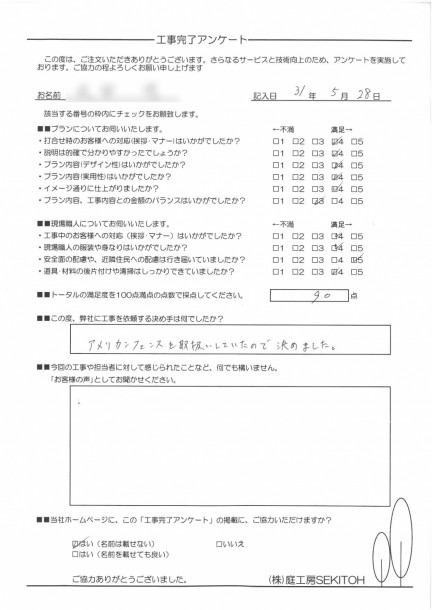 工事完了アンケート
この度は、ご注文いただきありがとうございます。さらなるサービスと技術向上のため、アンケートを実施して
おります。ご協力の程よろしくお願い申し上げます
お名前 記入日 31 年 5 月 28 日
該当する番号の枠内にチェックをお願致します。
■■プランについてお伺いいたします。 ←不満 満足→
・打合せ時のお客様への対応(挨拶・マナー)はいかがでしたか? □1 □2 □3 ☑4 □5
・説明は的確で分かりやすかったでしょうか? □1 □2 □3 ☑4 □5
・プラン内容(デザイン性)はいかがでしたか? □1 □2 □3 ☑4 □5
・プラン内容(実用性)はいかがでしたか? □1 □2 □3 ☑4 □5
・イメージ通りに仕上がりましたか? □1 □2 □3 ☑4 □5
・プラン内容、工事内容との金額のバランスはいかがでしたか? □1 □2 ☑3 □4 □5
■■現場職人についてお伺いいたします。 ←不満 満足→
・工事中のお客様への対応(挨拶・マナー)はいかがでしたか? □1 □2 □3 ☑4 □5
・現場職人の服装や身なりはいかがでしたか? □1 □2 □3 ☑4 □5
・安全面の配慮や、近隣住民への配慮は行き届いていましたか? □1 □2 □3 □4 ☑5
・道具・材料の後片付けや清掃はしっかりできていましたか? □1 □2 □3 ☑4 □5
■■トータルの満足度を100点満点の点数で採点してください。 90 点
■■この度、弊社に工事を依頼する決め手は何でしたか?
アメリカンフェンスを取扱いしていたので決めました。
■■今回の工事や担当者に対して感じられたことなど、何でも構いません。
「お客様の声」としてお聞かせください。
■■当社ホームページに、この「工事完了アンケート」の掲載に、ご協力いただけますか?
☑はい (名前は載せない) □いいえ
□はい (名前を載せても良い)
ご協力ありがとうございました。 (株)庭工房SEKITOH